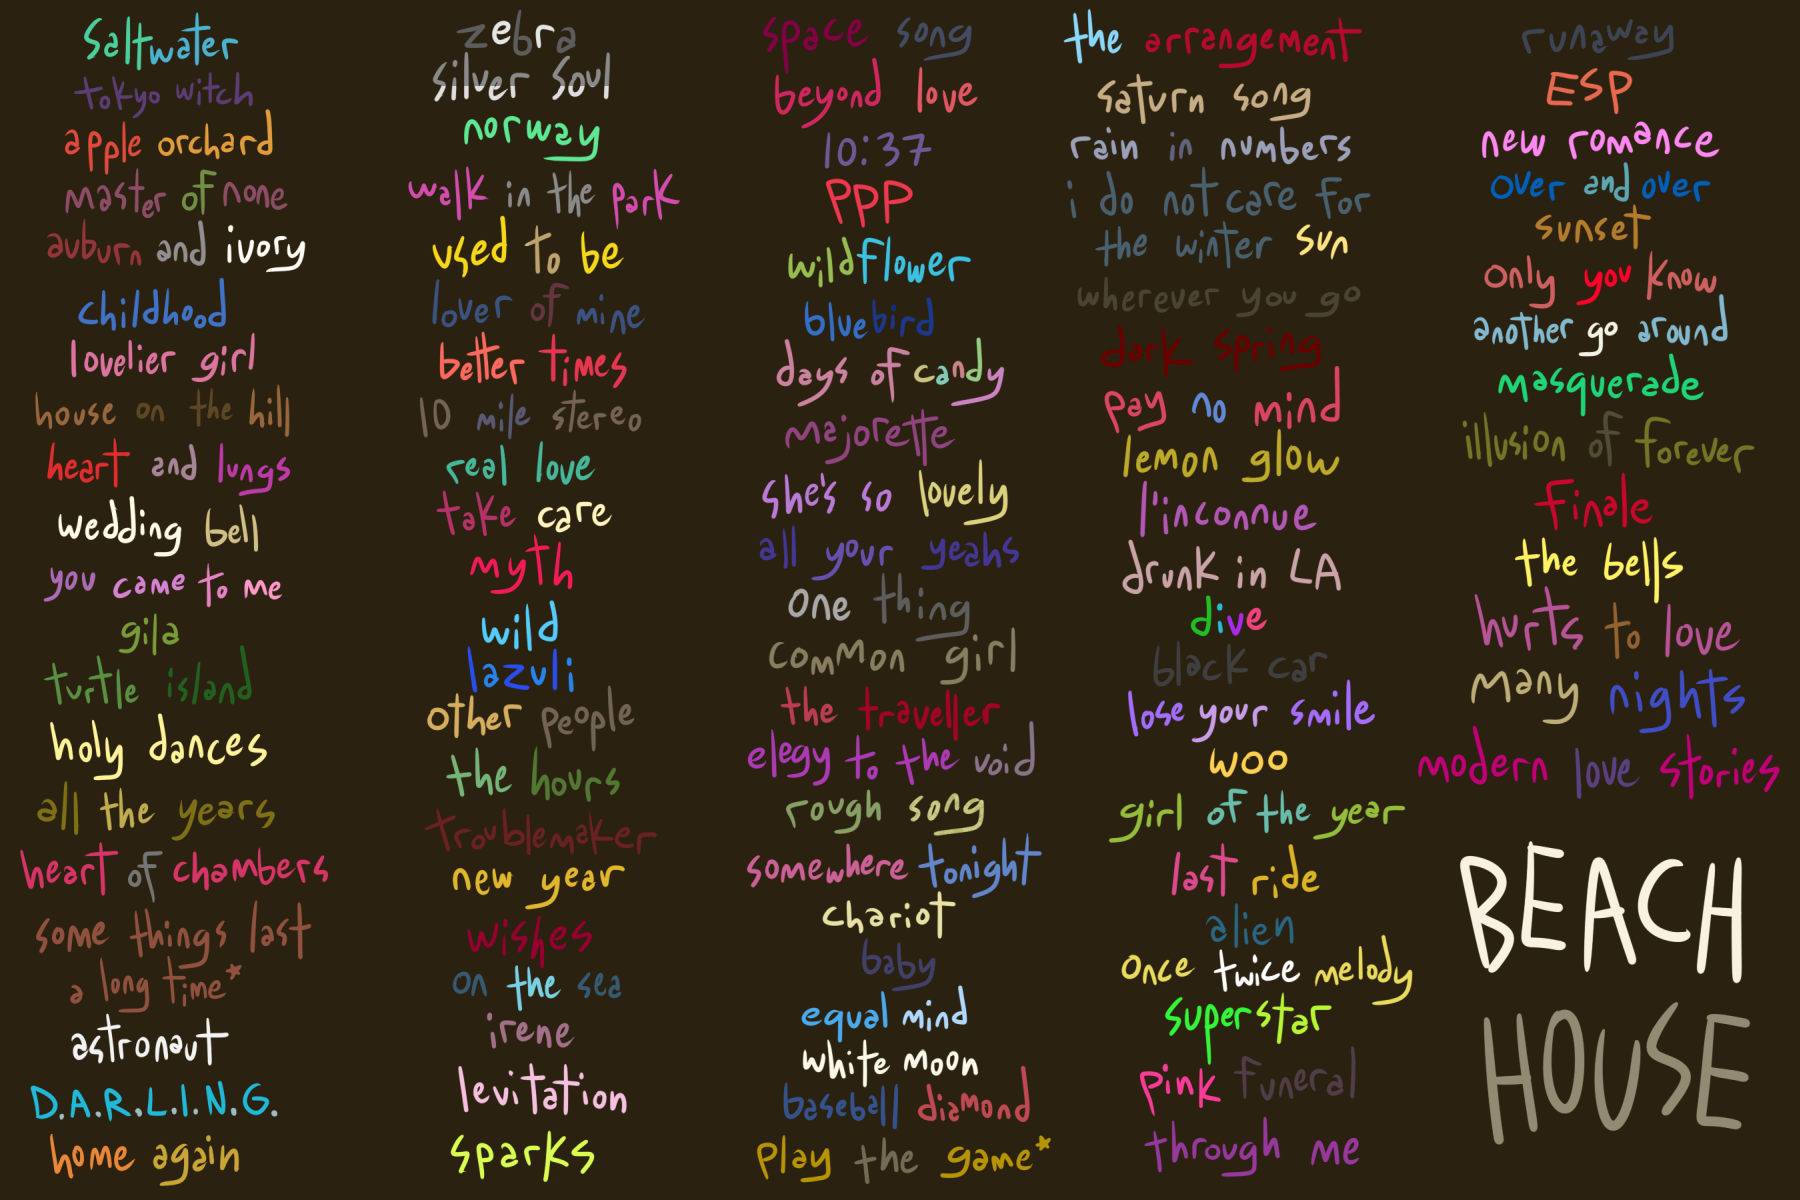 saltwater
tokyo witch
apple orchard
master of none
auburn and ivory
childhood
lovelier girl
house on the hill
heart and lungs
wedding bell
you came to me
gila
turtle island
holy dances
all the years
heart of chambers
some things last
a long time*
astronaut
D.A.R.L.I.N.G.
home again
zebra
silver soul
norway
walk in the park
used to be
lover of mine
better times
10 mile stereo
real love
take care
myth
wild
lazuli
other people
the hours
troublemaker
new year
wishes
on the sea
irene
levitation
sparks
space song
beyond love
10:37
PPP
wildflower
bluebird
days of candy
majorette
she's so lovely
all your yeahs
one thing
common girl
the traveller
elegy to the void
rough song
somewhere tonight
chariot
baby
equal mind
white moon
baseball diamond
play the game*
the arrangement
saturn song
rain in numbers
i do not care for
the winter sun
wherever you go
dark spring
pay no mind
lemon glow
l'inconnue
drunk in LA
dive
black car
lose your smile
woo
girl of the year
last ride
alien
once twice melody
superstar
pink funeral
through me
runaway
ESP
new romance
over and over
sunset
only you know
another go around
masquerade
illusion of forever
finale
the bells
hurts to love
many nights
modern love stories
BEACH
HOUSE